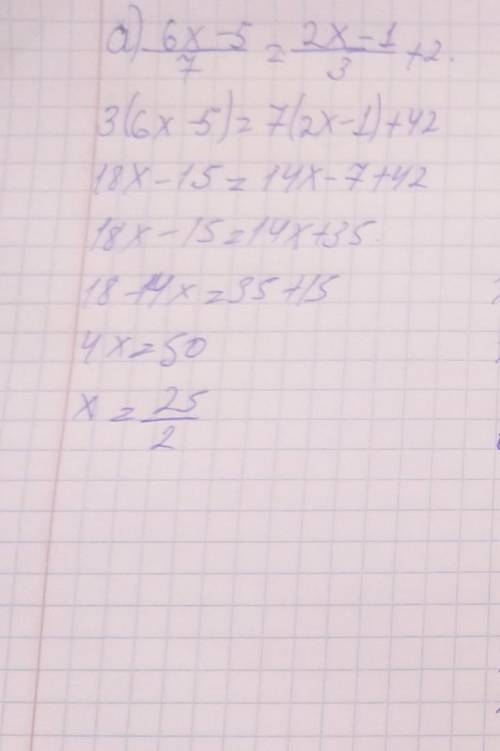 a) (6x-5)/7 = (2x-1)/3 + 2.
3(6x-5)=7(2x-1)+42
18x-15=14x-7+42
18x-15=14x+35.
18-14x=35+15
4x=50
x = 25/2